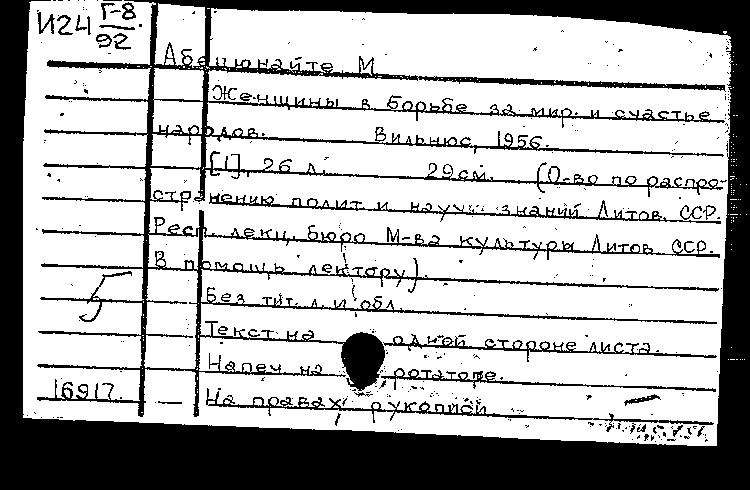 И24 Г-8
92
Абецюнайте М.
Женщины в борьбе за мир и счастье
народов. Вильнюс, 1956.
[1], 26 л. 29 см. (О-во по распро-
странению полит и научн. знаний Литов. ССР.
Респ. лекц. бюро М-ва культуры Литов. ССР.
В помощь лектору)
Без тит. л. и обл.
5
Текст на одной стороне листа.
Напеч на ротаторе.
16917
На правах рукописи.